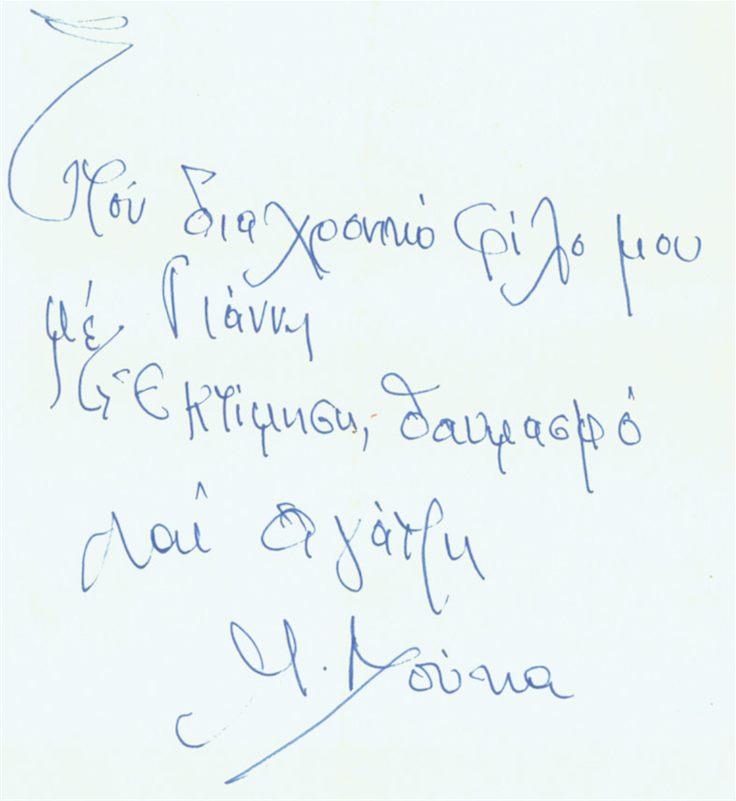 Στόν διαχρονικό φίλο μου
μέ Γιάννη
Ἐκτίμηση, θαυμασμό
καί ἀγάπη